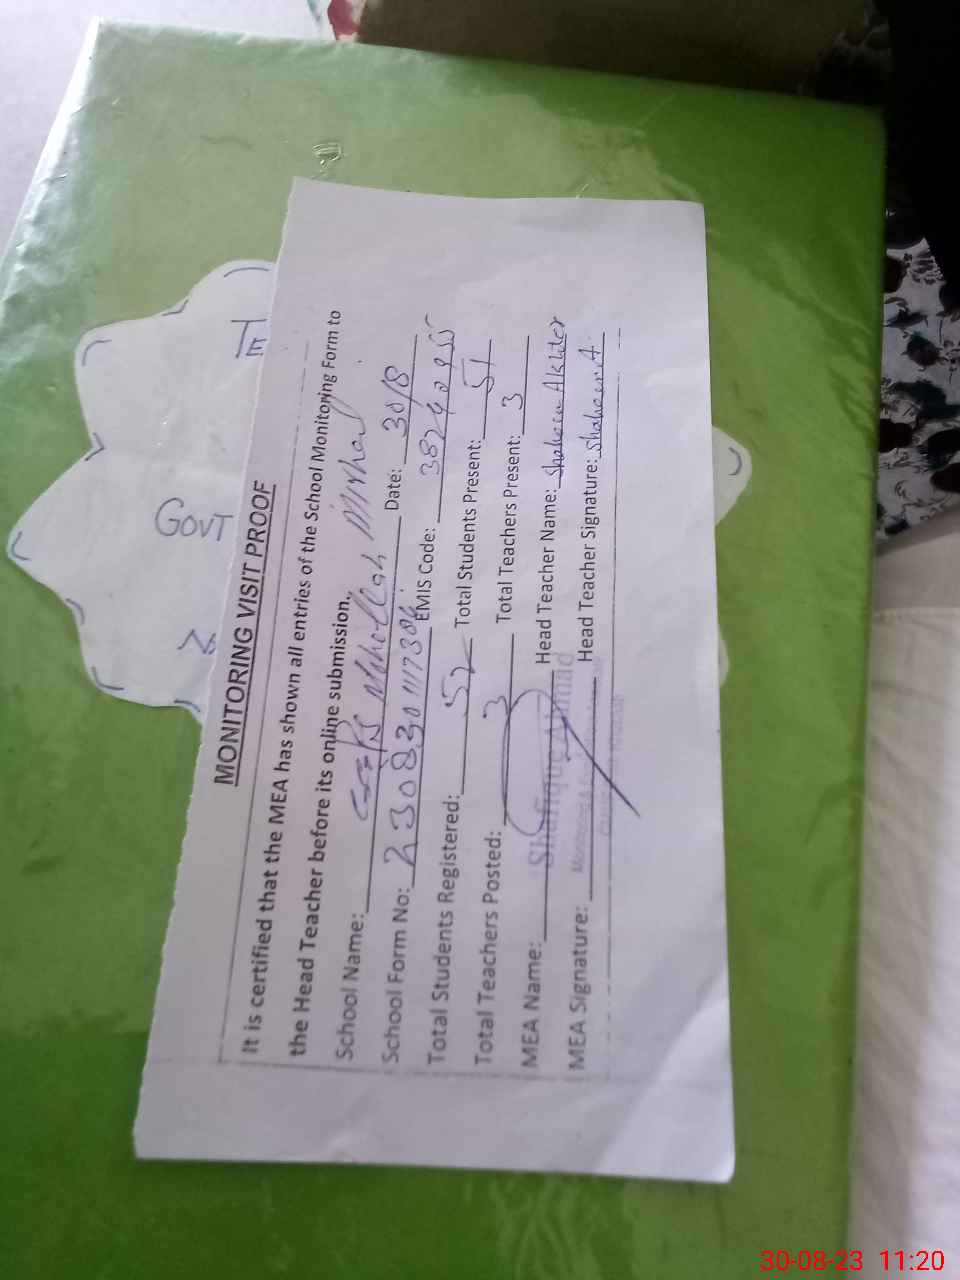 TE
GOVT
MONITORING VISIT PROOF
It is certified that the MEA has shown all entries of the School Monitoring Form to
the Head Teacher before its online submission.
School Name:
School Form No: Date: 30/8
Total Students Registered: 52 EMIS Code:
Total Students Present: 51
Total Teachers Posted: 3 Total Teachers Present: 3
MEA Name: Shafique Ahmad Head Teacher Name: Shaheen Akhter
MEA Signature: Head Teacher Signature: Shaheen A.
30-08-23 11:20